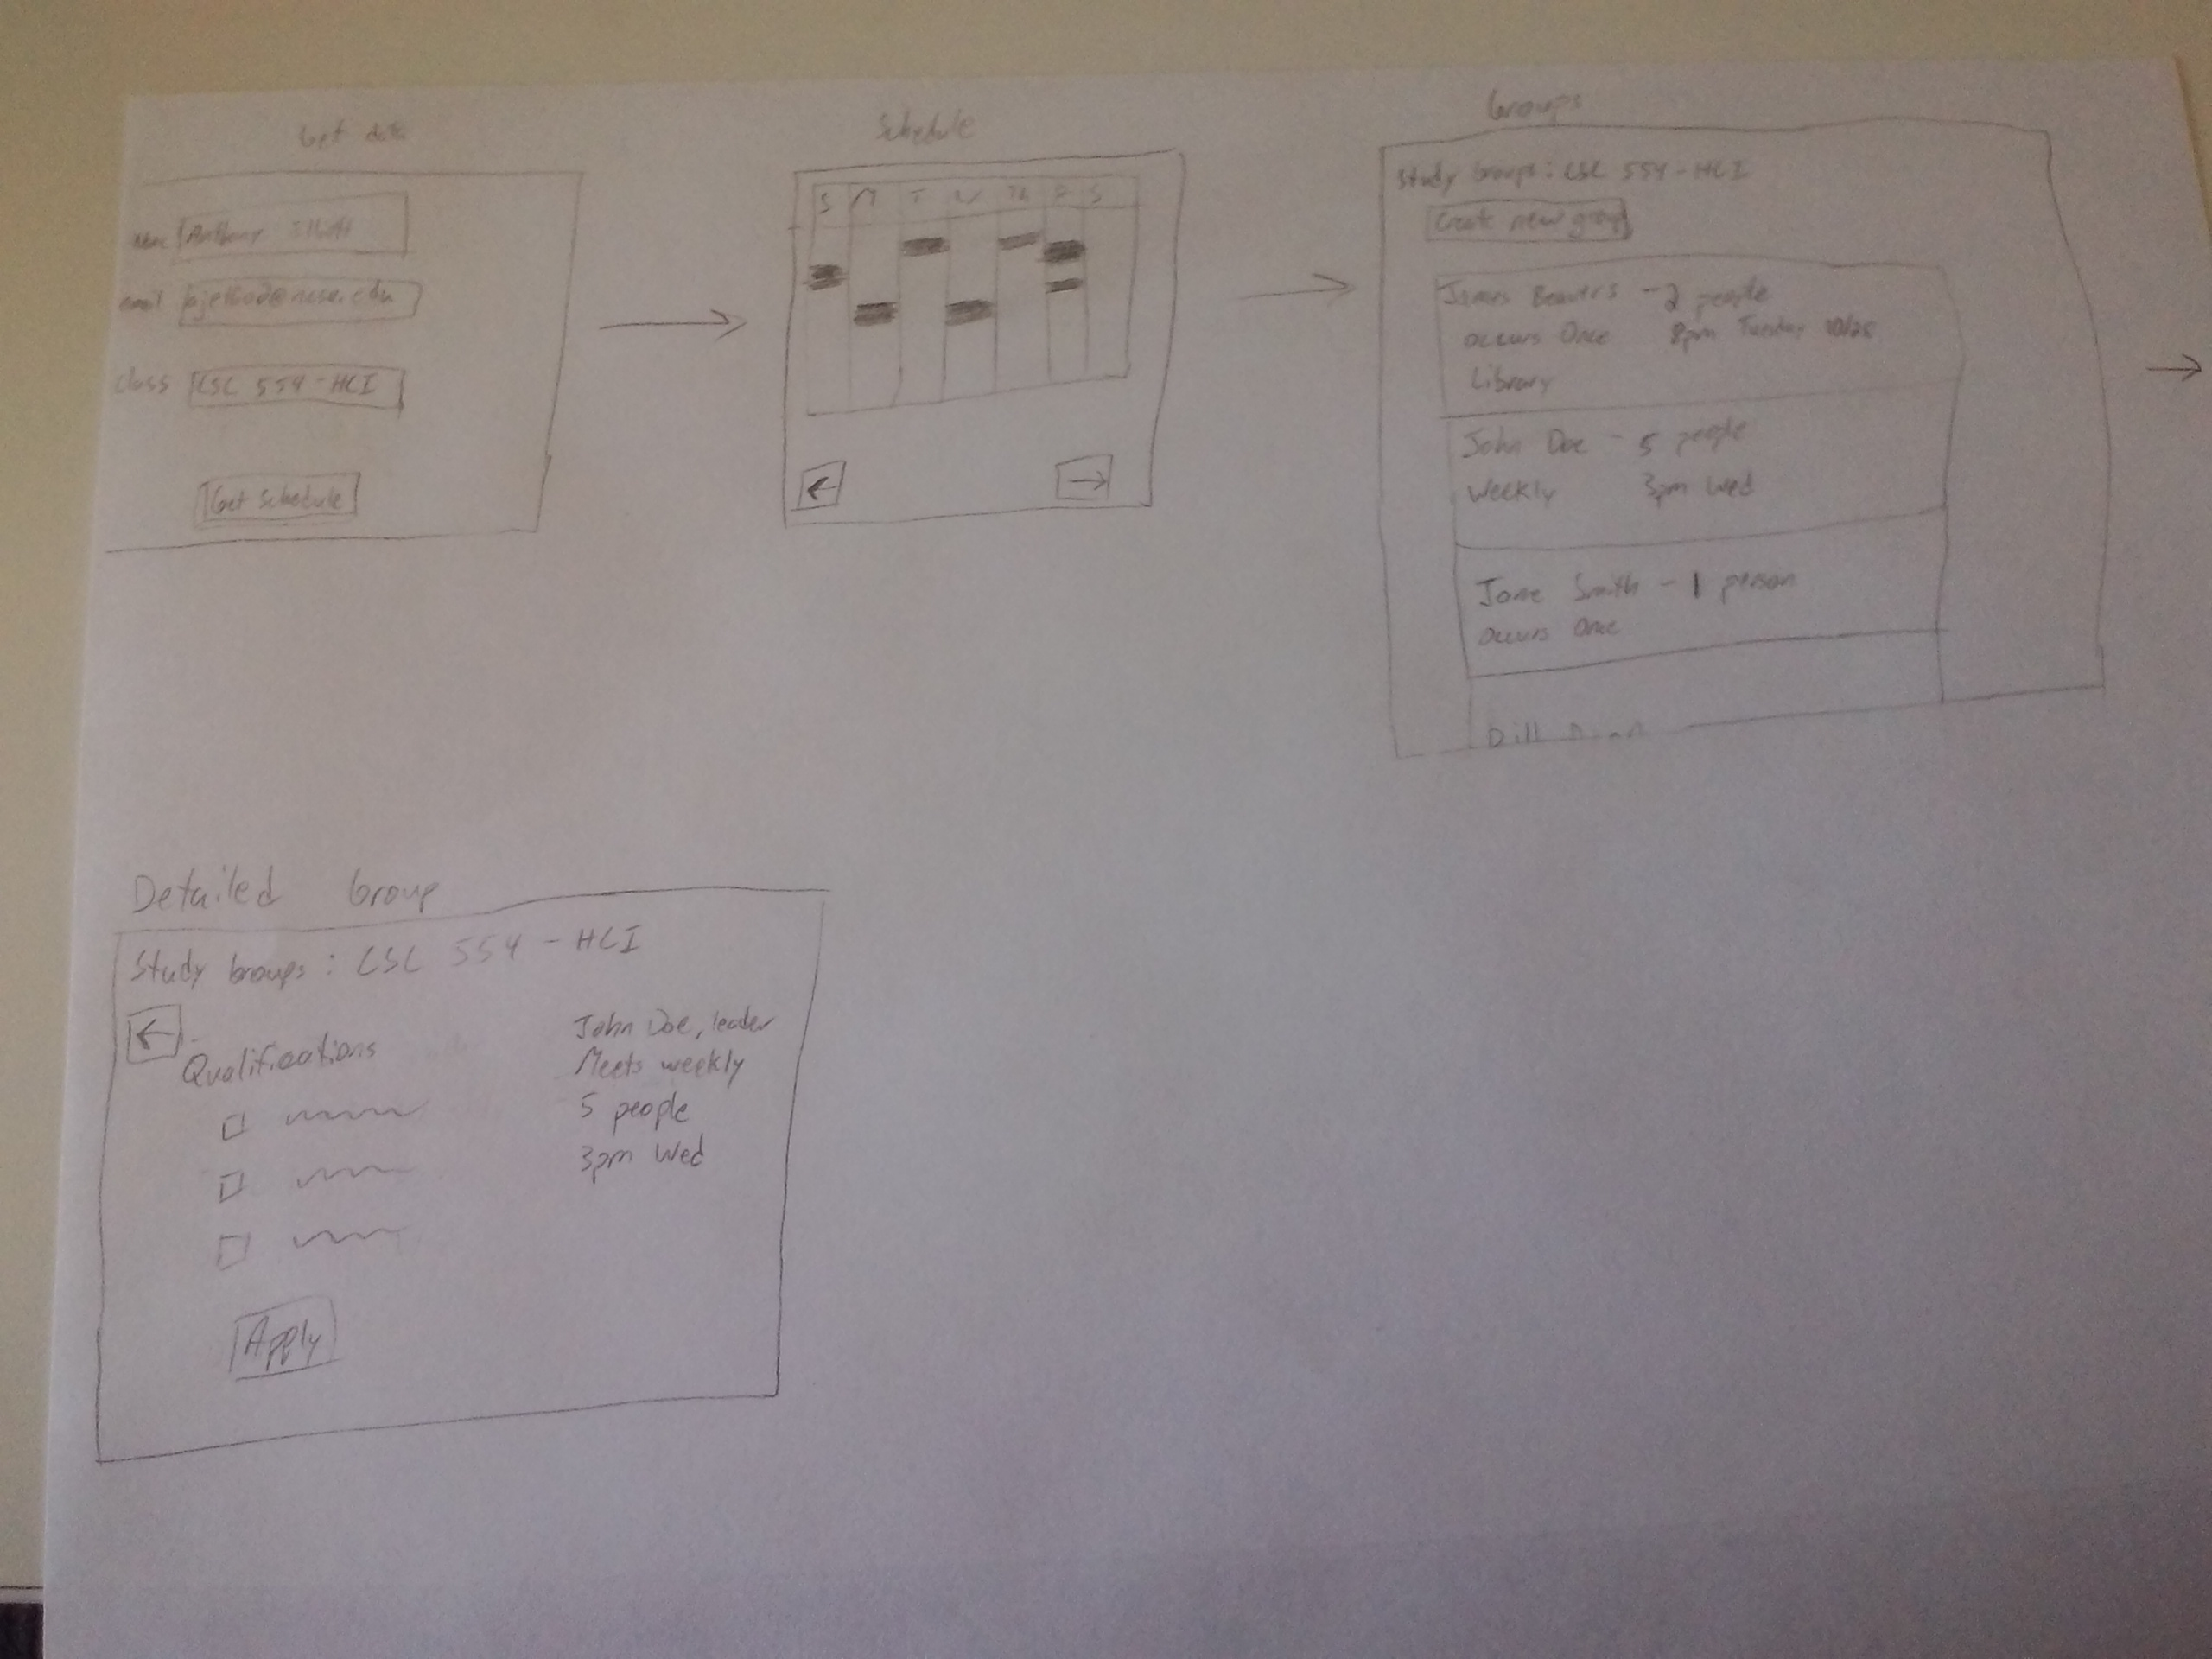 Get data
name Anthony
email
class CSC 554 - HCI
Get Schedule
Schedule
S M T W Th F S
Groups
Study Groups: CSC 554 - HCI
Create new group
James Beavers - 2 people
occurs Once 8pm Tuesday
Library
John Doe - 5 people
Weekly 3pm Wed
Jane Smith - 1 person
Occurs Once
Detailed Group
Study Groups: CSC 554 - HCI
Qualifications
John Doe, leader
Meets weekly
5 people
3pm Wed
Apply